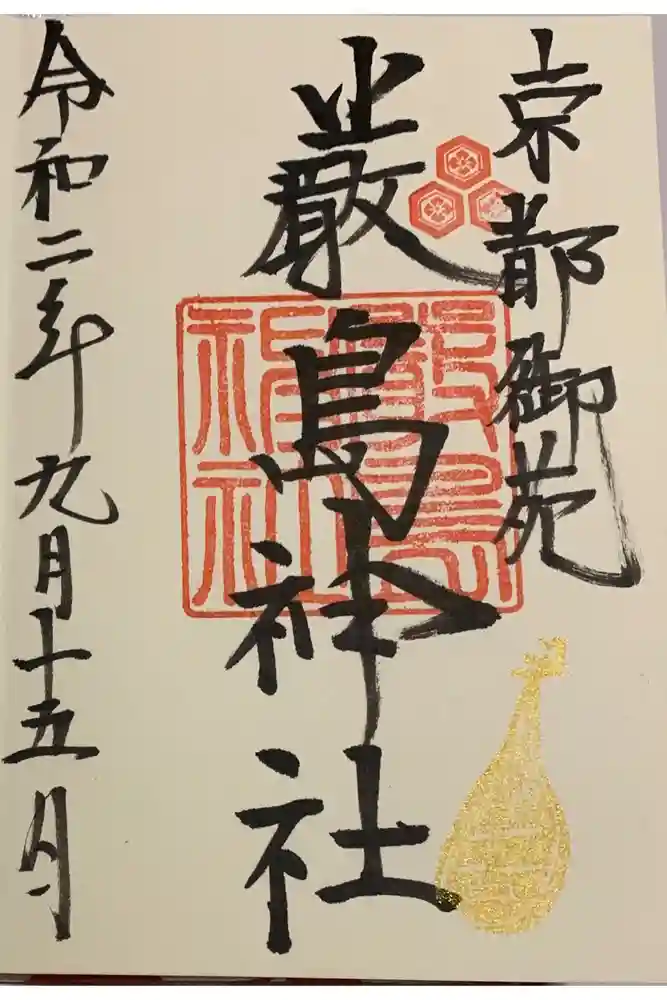 京都御苑
厳島神社
厳島神社
令和二年九月十五日